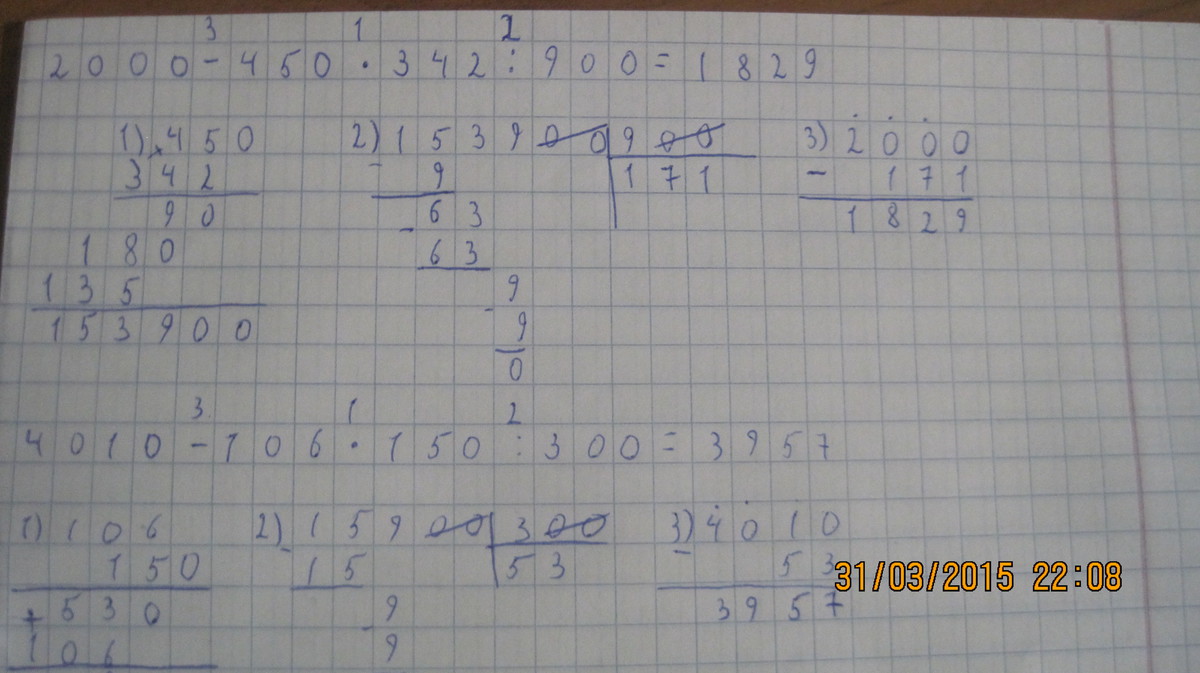 3 1 2
2000-450·342:900=1829
1) ×450 2) 153900 900 3) 2000
342 - 9 171 - 171
90 - 63 1829
180 63
135 - 9
153900 9
0
3 1 2
4010-106·150:300=3957
1) 106 2) 15900 300 3) 4010
150 - 15 53 - 53
+ 530 - 9 3957
106 9
31/03/2015 22:08